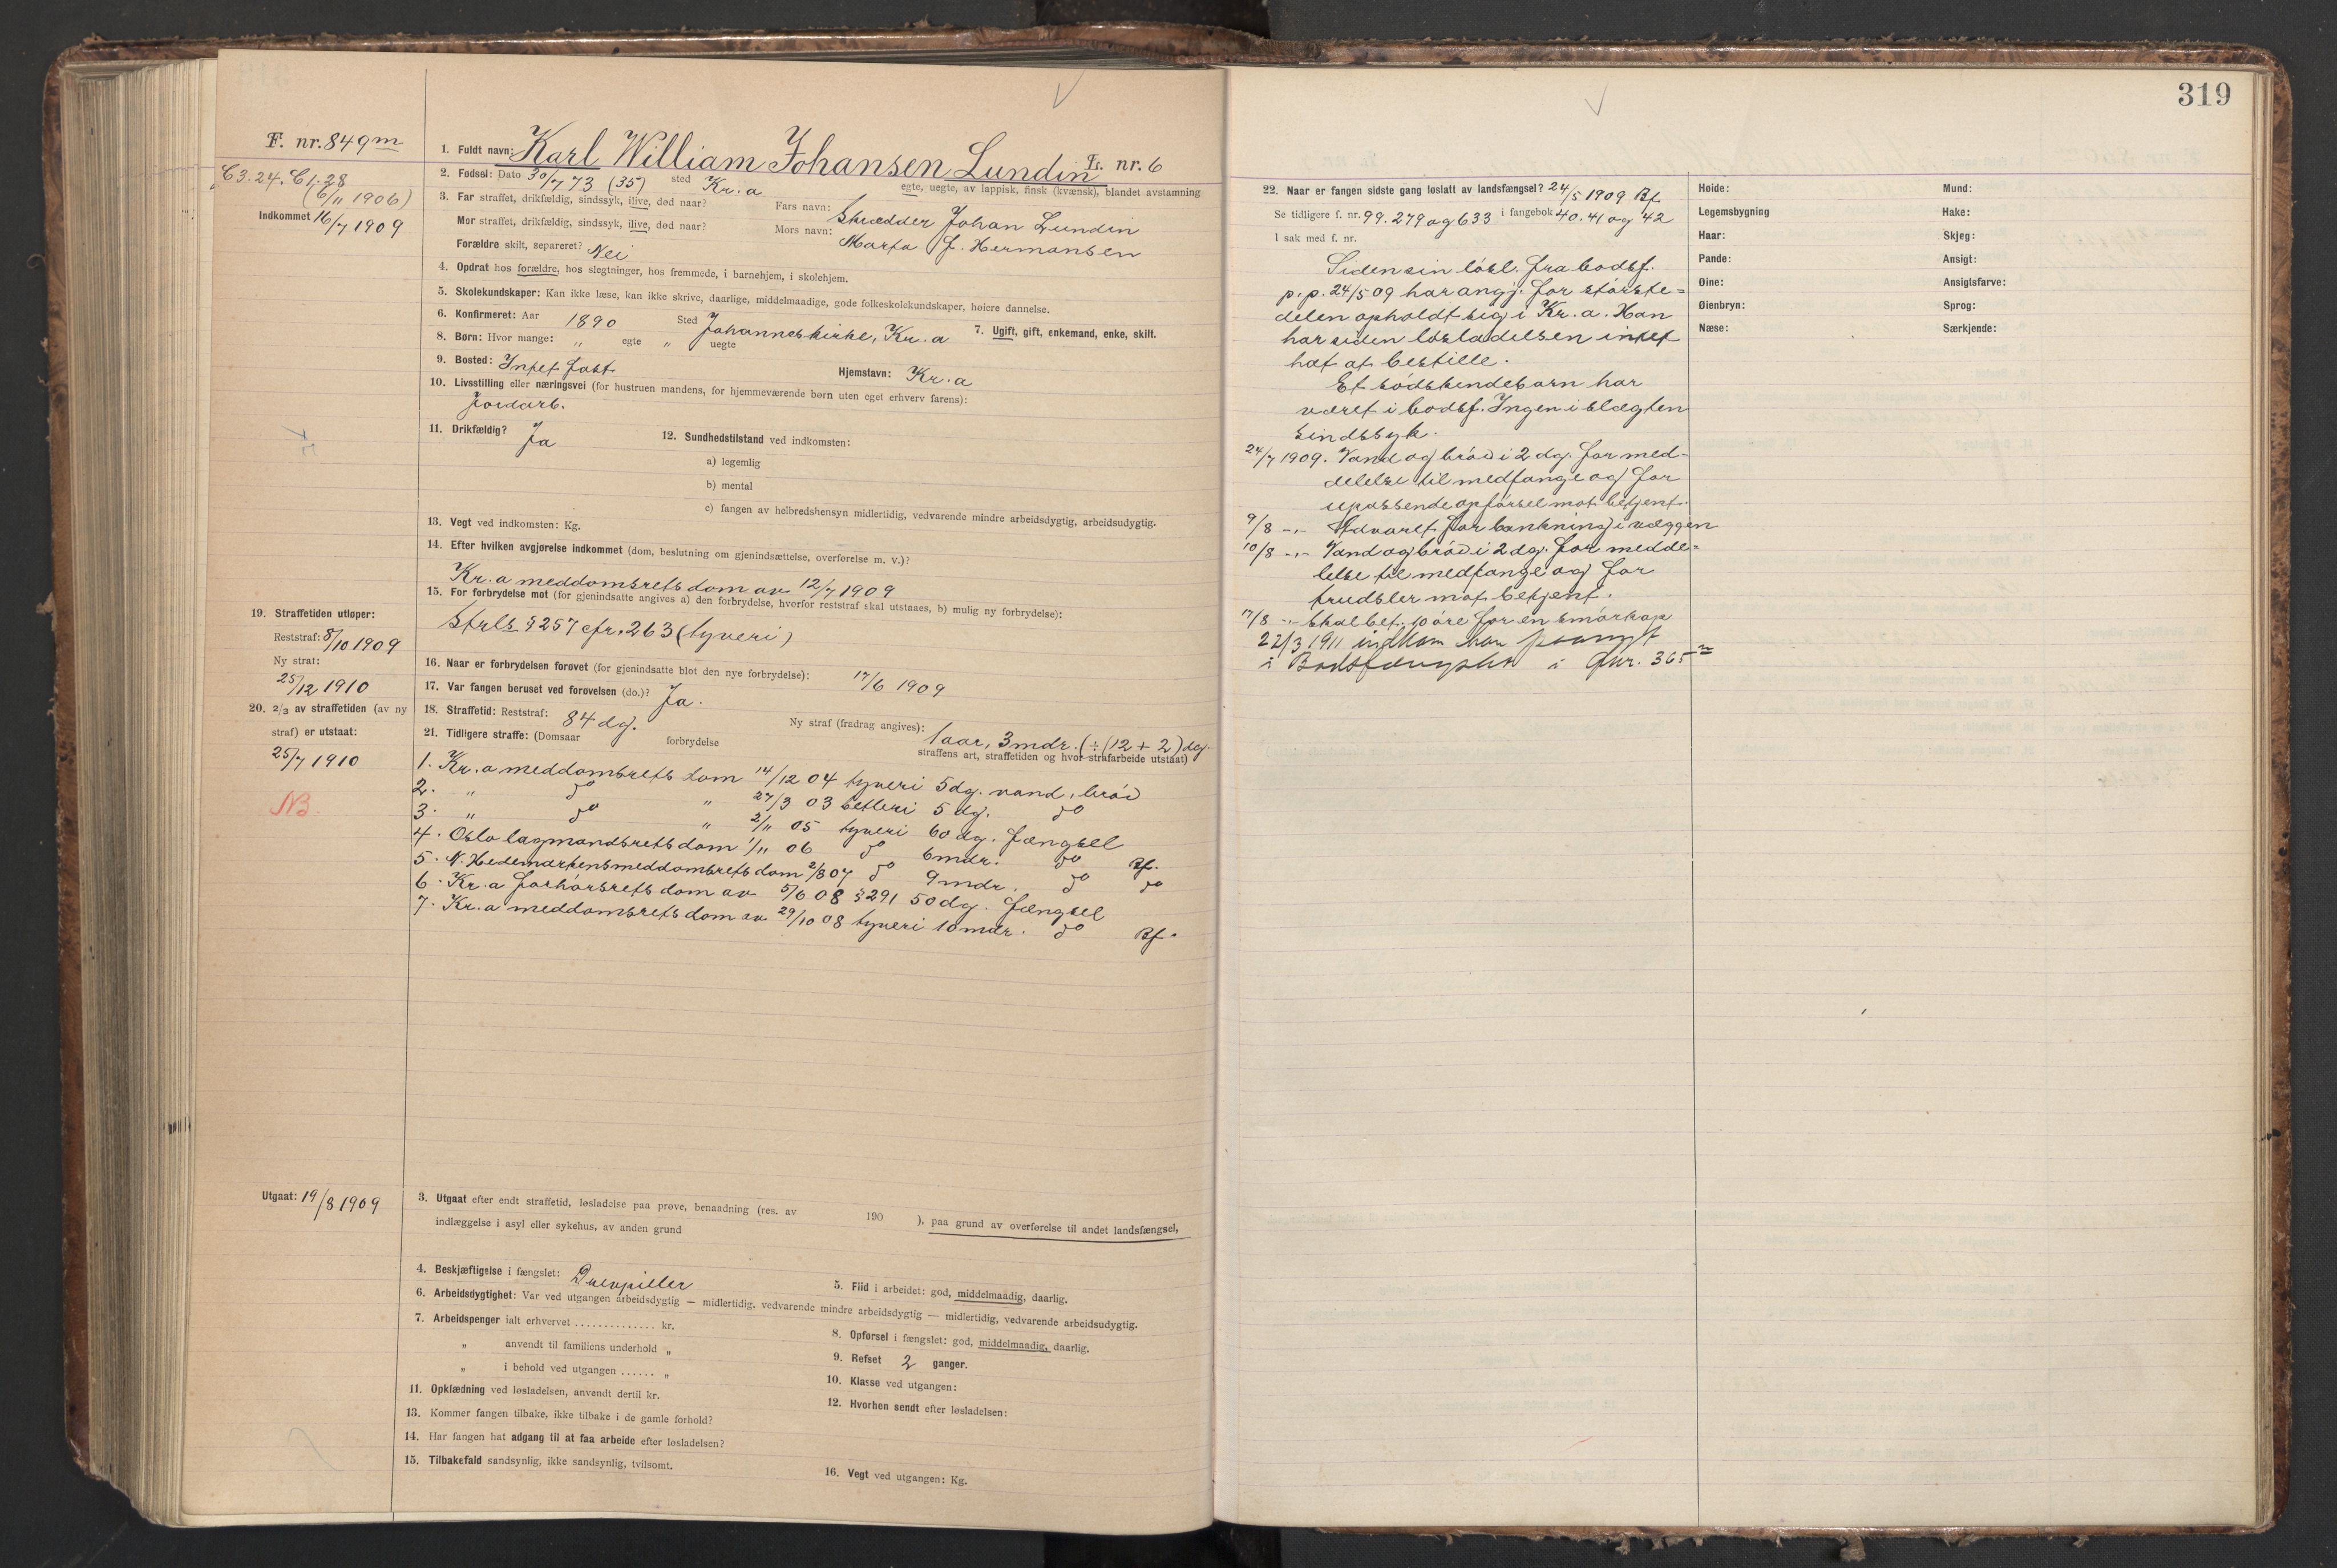 F. nr. 849 m
C3.24. C1.28
(6/11 1906)
Indkommet 16/7 1909
1. Fuldt navn: Karl William Johansen Lundin Ts. nr. 6
2. Fødsel: Dato 30/7 73 (35) sted Kr.a egte, uegte, av lappisk, finsk (kvænsk), blandet avstamning
3. Far straffet, drikfældig, sindssyk, ilive, død naar? Fars navn: Skrædder Johan Lundin
Mor straffet, drikfældig, sindssyk, ilive, død naar? Mors navn: Marta J. Hermansen
Forældre skilt, separeret? Nei
4. Opdrat hos forældre, hos slegtninger, hos fremmede, i barnehjem, i skolehjem.
5. Skolekundskaper: Kan ikke læse, kan ikke skrive, daarlige, middelmaadige, gode folkeskolekundskaper, høiere dannelse.
6. Konfirmeret: Aar 1890 Sted Johanneskirke, Kr.a 7. Ugift, gift, enkemand, enke, skilt.
8. Børn: Hvor mange: „ egte „ uegte
9. Bosted: Intet fast Hjemstavn: Kr.a
10. Livsstilling eller næringsvei (for hustruen mandens, for hjemmeværende børn uten eget erhverv farens):
Jordarb.
11. Drikfældig? Ja 12. Sundhedstilstand ved indkomsten:
a) legemlig
b) mental
c) fangen av helbredshensyn midlertidig, vedvarende mindre arbeidsdygtig, arbeidsudygtig.
13. Vegt ved indkomsten: Kg.
14. Efter hvilken avgjørelse indkommet (dom, beslutning om gjenindsættelse, overførelse m. v.)?
Kr.a meddomsrets dom av 12/7 1909
15. For forbrydelse mot (for gjenindsatte angives a) den forbrydelse, hvorfor reststraf skal utstaaes, b) mulig ny forbrydelse):
Strls § 257 cfr. 263 (tyveri)
16. Naar er forbrydelsen forøvet (for gjenindsatte blot den nye forbrydelse): 17/6 1909
17. Var fangen beruset ved forøvelsen (do.)? Ja.
18. Straffetid: Reststraf: 84 dg. Ny straf (fradrag angives): 1 aar, 3 mdr. (÷ (12 + 2) dg.
19. Straffetiden utløper:
Reststraf: 8/10 1909
Ny straf:
25/12 1910
20. 2/3 av straffetiden (av ny
straf) er utstaat:
25/7 1910
NB.
21. Tidligere straffe: (Domsaar forbrydelse straffens art, straffetiden og hvor strafarbeide utstaat)
1. Kr.a meddomsrets dom 14/12 04 tyveri 5 dg. vand. brød
2. „ do „ 27/3 03 betleri 5 dg. do
3. „ do „ 2/11 05 tyveri 60 dg. fængsel
4. Oslo lagmandsrets dom 1/11 06 do 6 mdr. do Bf.
5. N. Hedemarkens meddomsrets dom 2/8 07 do 9 mdr. do do
6. Kr.a forhørsrets dom av 5/6 08 § 291 50 dg. fængsel
7. Kr.a meddomsrets dom av 29/10 08 tyveri 10 mdr. do Bf.
Utgaat: 19/8 1909
3. Utgaat efter endt straffetid, løsladelse paa prøve, benaadning (res. av 190 ), paa grund av overførelse til andet landsfængsel,
indlæggelse i asyl eller sykehus, av anden grund
4. Beskjæftigelse i fængslet: Drevpiller 5. Flid i arbeidet: god, middelmaadig, daarlig.
6. Arbeidsdygtighet: Var ved utgangen arbeidsdygtig — midlertidig, vedvarende mindre arbeidsdygtig — midlertidig, vedvarende arbeidsudygtig.
7. Arbeidspenger ialt erhvervet .............. kr.
„ anvendt til familiens underhold „
„ i behold ved utgangen ...... „
8. Opførsel i fængslet: god, middelmaadig, daarlig.
9. Refset 2 ganger.
10. Klasse ved utgangen:
11. Opklædning ved løsladelsen, anvendt dertil kr.
12. Hvorhen sendt efter løsladelsen:
13. Kommer fangen tilbake, ikke tilbake i de gamle forhold?
14. Har fangen hat adgang til at faa arbeide efter løsladelsen?
15. Tilbakefald sandsynlig, ikke sandsynlig, tvilsomt.
16. Vegt ved utgangen: Kg.
319
22. Naar er fangen sidste gang løslatt av landsfængsel? 24/5 1909 Bf.
Se tidligere f. nr. 99. 279 og 633 i fangebok 40. 41 og 42
I sak med f. nr.
Siden sin løsl. fra bodsf.
p. p. 24/5 09 har angj. for største=
delen opholdt sig i Kr.a. Han
har siden løsladelsen intet
hat at bestille.
Et sødskendebarn har
været i bodsf. Ingen i slægten
sindssyk.
24/7 1909. Vand og brød i 2 dg. for med-
delelse til medfange og for
upassende opførsel mot betjent.
9/8 -„- Advaret for bankning i væggen
10/8 -„- Vand og brød i 2 dg. for medde=
lelse til medfange og for
trudsler mot betjent.
17/8 -„- Skal bet. 10 øre for en smørkop
22/3 1911 indkom han paanyt
i Bodsfængslet i fnr. 365 m
Høide: Mund:
Legemsbygning Hake:
Haar: Skjeg:
Pande: Ansigt:
Øine: Ansigtsfarve:
Øienbryn: Sprog:
Næse: Særkjende: